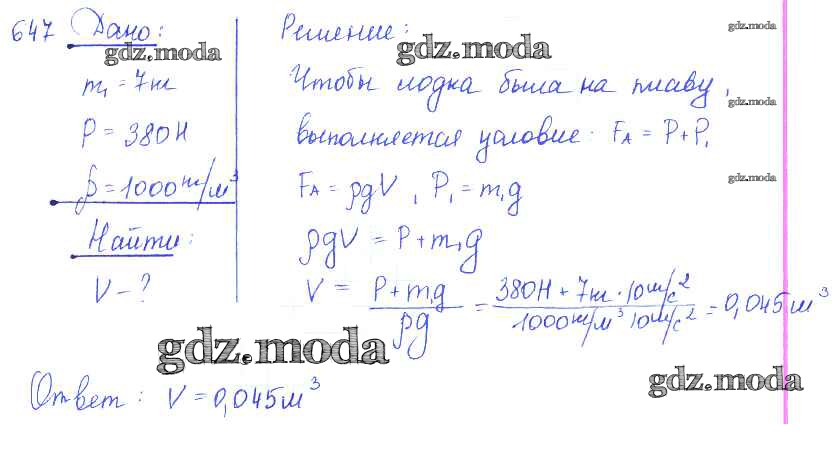 647 Дано:
gdz.moda
m₁ = 7кг
P = 380Н
ρ = 1000кг/м³
Найти:
V - ?
Решение:
gdz.moda
gdz.moda
Чтобы лодка была на плаву,
gdz.moda
выполняется условие: F_A = P + P₁
gdz.moda
F_A = ρgV, P₁ = m₁g
ρgV = P + m₁g
V = (P + m₁g)/(ρg) = (380Н + 7кг · 10м/с²)/(1000кг/м³ 10м/с²) = 0,045м³
gdz.moda
gdz.moda
Ответ: V = 0,045м³